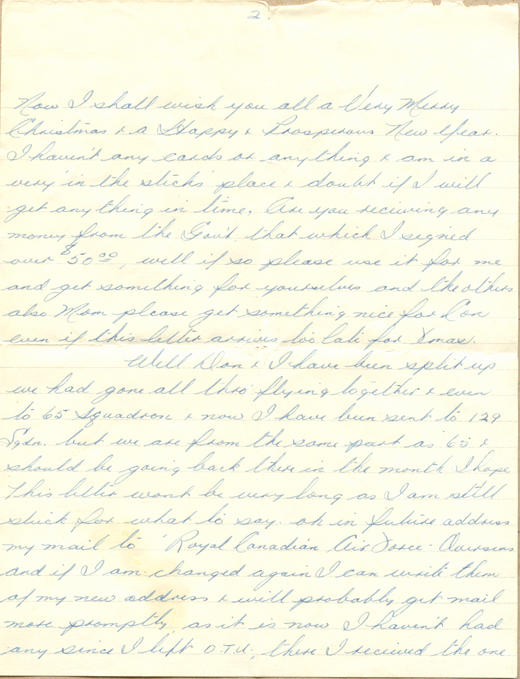 2.
Now I shall wish you all a Very Merry
Christmas & a Happy & Prosperous New Year.
I haven't any cards or anything & am in a
very 'in the sticks' place & doubt if I will
get anything in time. Are you reciving any
money from the Gov't that which I signed
over $50.00, well if so please use it for me
and get something for yourselves and the others
also Mom please get something nice for Lon
even if this letter arrives too late for Xmas.
Well Don & I have been split up
we had gone all thro' flying together & even
to 65 Squadron & now I have been sent to 129
Sqdn. but we are from the same part as '65 &
should be going back there in the month I hope
This letter wont be very long as I am still
stuck for what to say. oh in future address
my mail to 'Royal Canadian Air Force - Overseas
and if I am changed again I can write them
of my new address & will probably get mail
more promptly, as it is now I haven't had
any since I left O.T.U., there I recieved the one